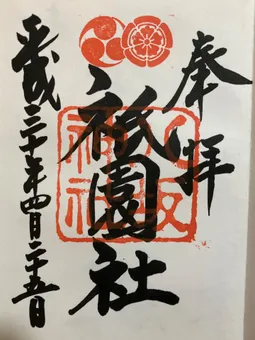 奉拝
八坂神社
祇園社
平成三十年四月二十五日